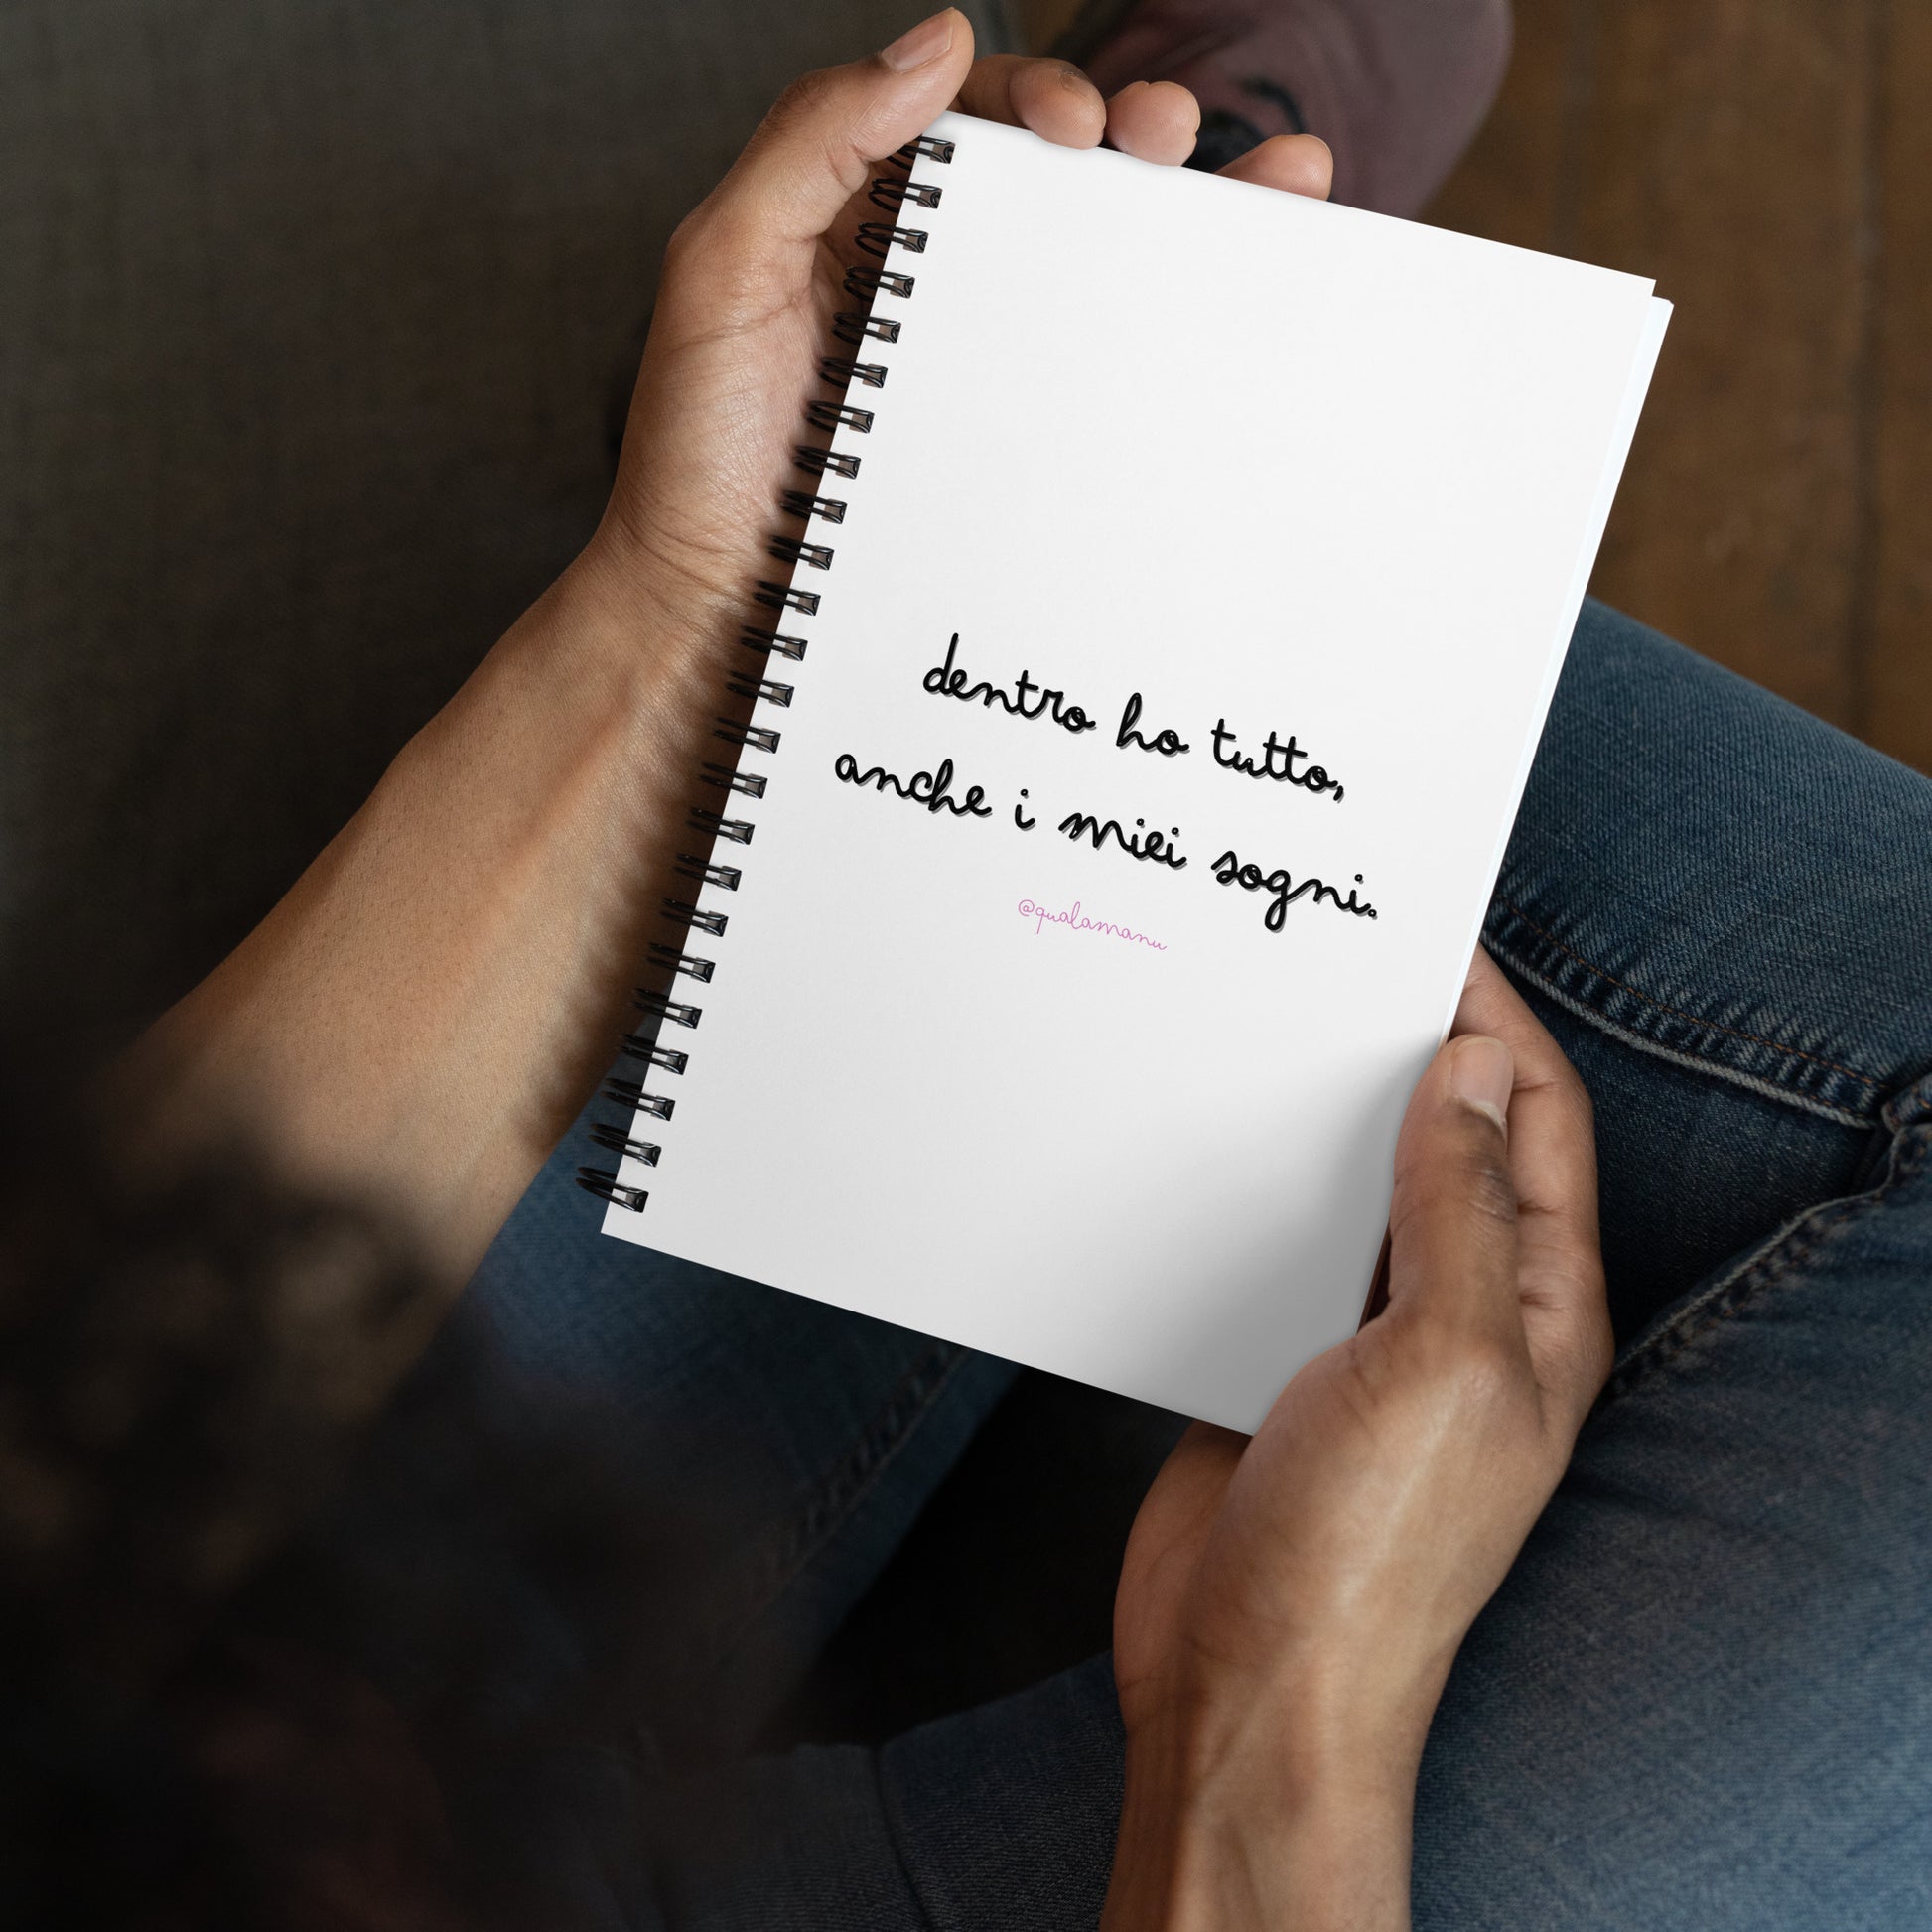 dentro ho tutto,
anche i miei sogni.
@qualamanu